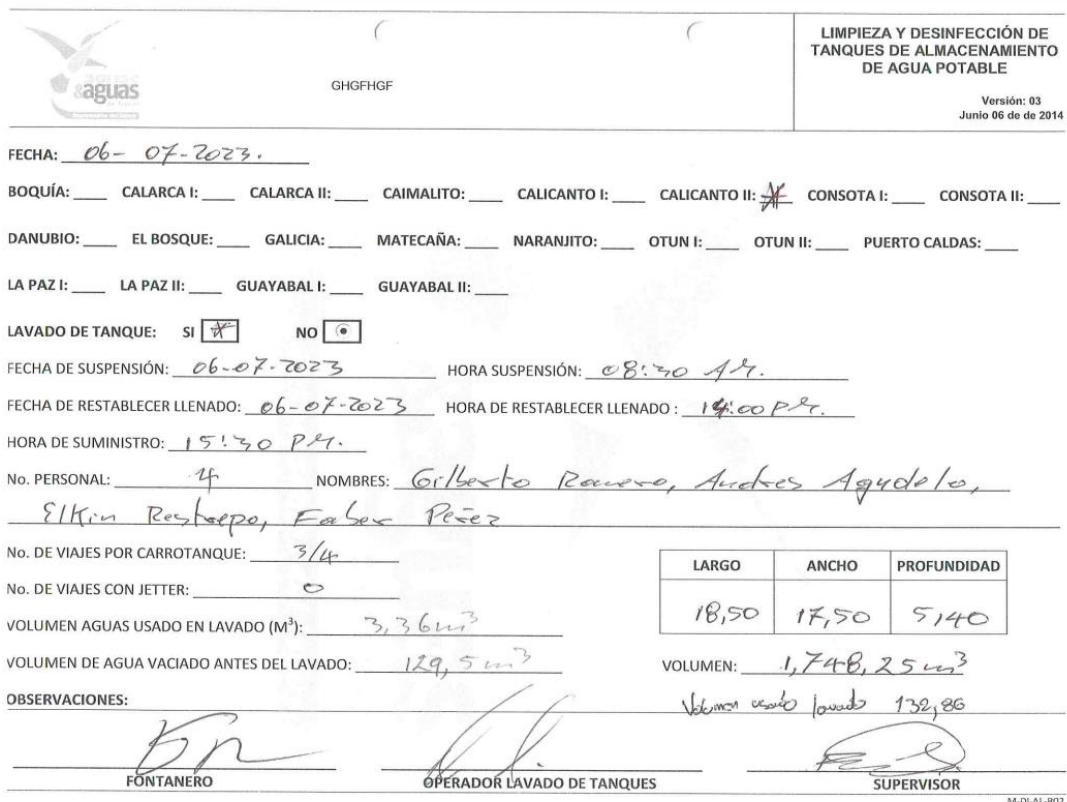 &aguas
GHGFHGF
LIMPIEZA Y DESINFECCIÓN DE
TANQUES DE ALMACENAMIENTO
DE AGUA POTABLE
Versión: 03
Junio 06 de de 2014
FECHA: 06- 07-2023.
BOQUÍA: ____ CALARCA I: ____ CALARCA II: ____ CAIMALITO: ____ CALICANTO I: ____ CALICANTO II: X CONSOTA I: ____ CONSOTA II: ____
DANUBIO: ____ EL BOSQUE: ____ GALICIA: ____ MATECAÑA: ____ NARANJITO: ____ OTUN I: ____ OTUN II: ____ PUERTO CALDAS: ____
LA PAZ I: ____ LA PAZ II: ____ GUAYABAL I: ____ GUAYABAL II: ____
LAVADO DE TANQUE: SI X NO
FECHA DE SUSPENSIÓN: 06-07-2023 HORA SUSPENSIÓN: 08:30 A.M.
FECHA DE RESTABLECER LLENADO: 06-07-2023 HORA DE RESTABLECER LLENADO : 14:00 P.M.
HORA DE SUMINISTRO: 15:30 P.M.
No. PERSONAL: 4 NOMBRES: Gilberto Romero, Andres Agudelo,
Elkin Restrepo, Faber Perez
No. DE VIAJES POR CARROTANQUE: 3/4
No. DE VIAJES CON JETTER: 0
LARGO ANCHO PROFUNDIDAD
18,50 17,50 5,40
VOLUMEN AGUAS USADO EN LAVADO (M³): 3,36 m³
VOLUMEN DE AGUA VACIADO ANTES DEL LAVADO: 129,5 m³ VOLUMEN: 1,748,25 m³
OBSERVACIONES: Volumen usado lavado 132,86
FONTANERO OPERADOR LAVADO DE TANQUES SUPERVISOR
M-DI-AL-R02